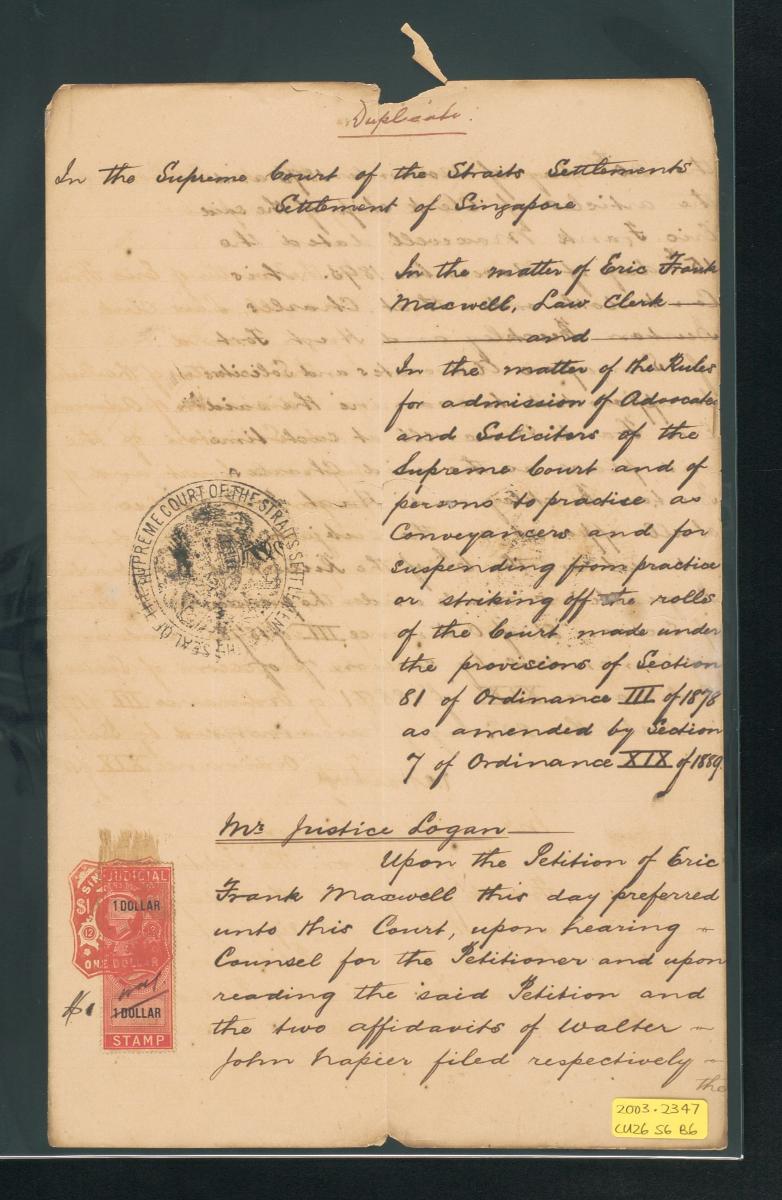 Duplicate.
In the Supreme Court of the Straits Settlements
Settlement of Singapore
In the matter of Eric Frank
Maxwell, Law Clerk
and
In the matter of the Rules
for admission of Advocates
and Solicitors of the
Supreme Court and of
persons to practice as
Conveyancers and for
suspending from practice
or striking off the rolls
of the Court made under
the provisions of Section
81 of Ordinance III of 1878
as amended by Section
7 of Ordinance XIX of 1889.
SEAL OF THE SUPREME COURT OF THE STRAITS SETTLEMENTS
Mr Justice Logan
Upon the Petition of Eric
Frank Maxwell this day preferred
unto this Court, upon hearing
Counsel for the Petitioner and upon
reading the said Petition and
the two affidavits of Walter
John Napier filed respectively
the
JUDICIAL
$1
1 DOLLAR
ONE DOLLAR
$1
1 DOLLAR
STAMP
2003.2347
CU26 S6 B6